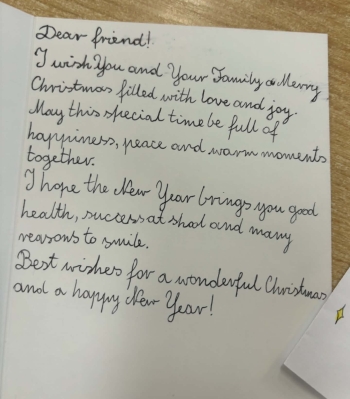 Dear friend!
I wish You and Your Family a Merry
Christmas filled with love and joy.
May this special time be full of
happiness, peace and warm moments
together.
I hope the New Year brings you good
health, success at shool and many
reasons to smile.
Best wishes for a wonderful Christmas
and a happy New Year!